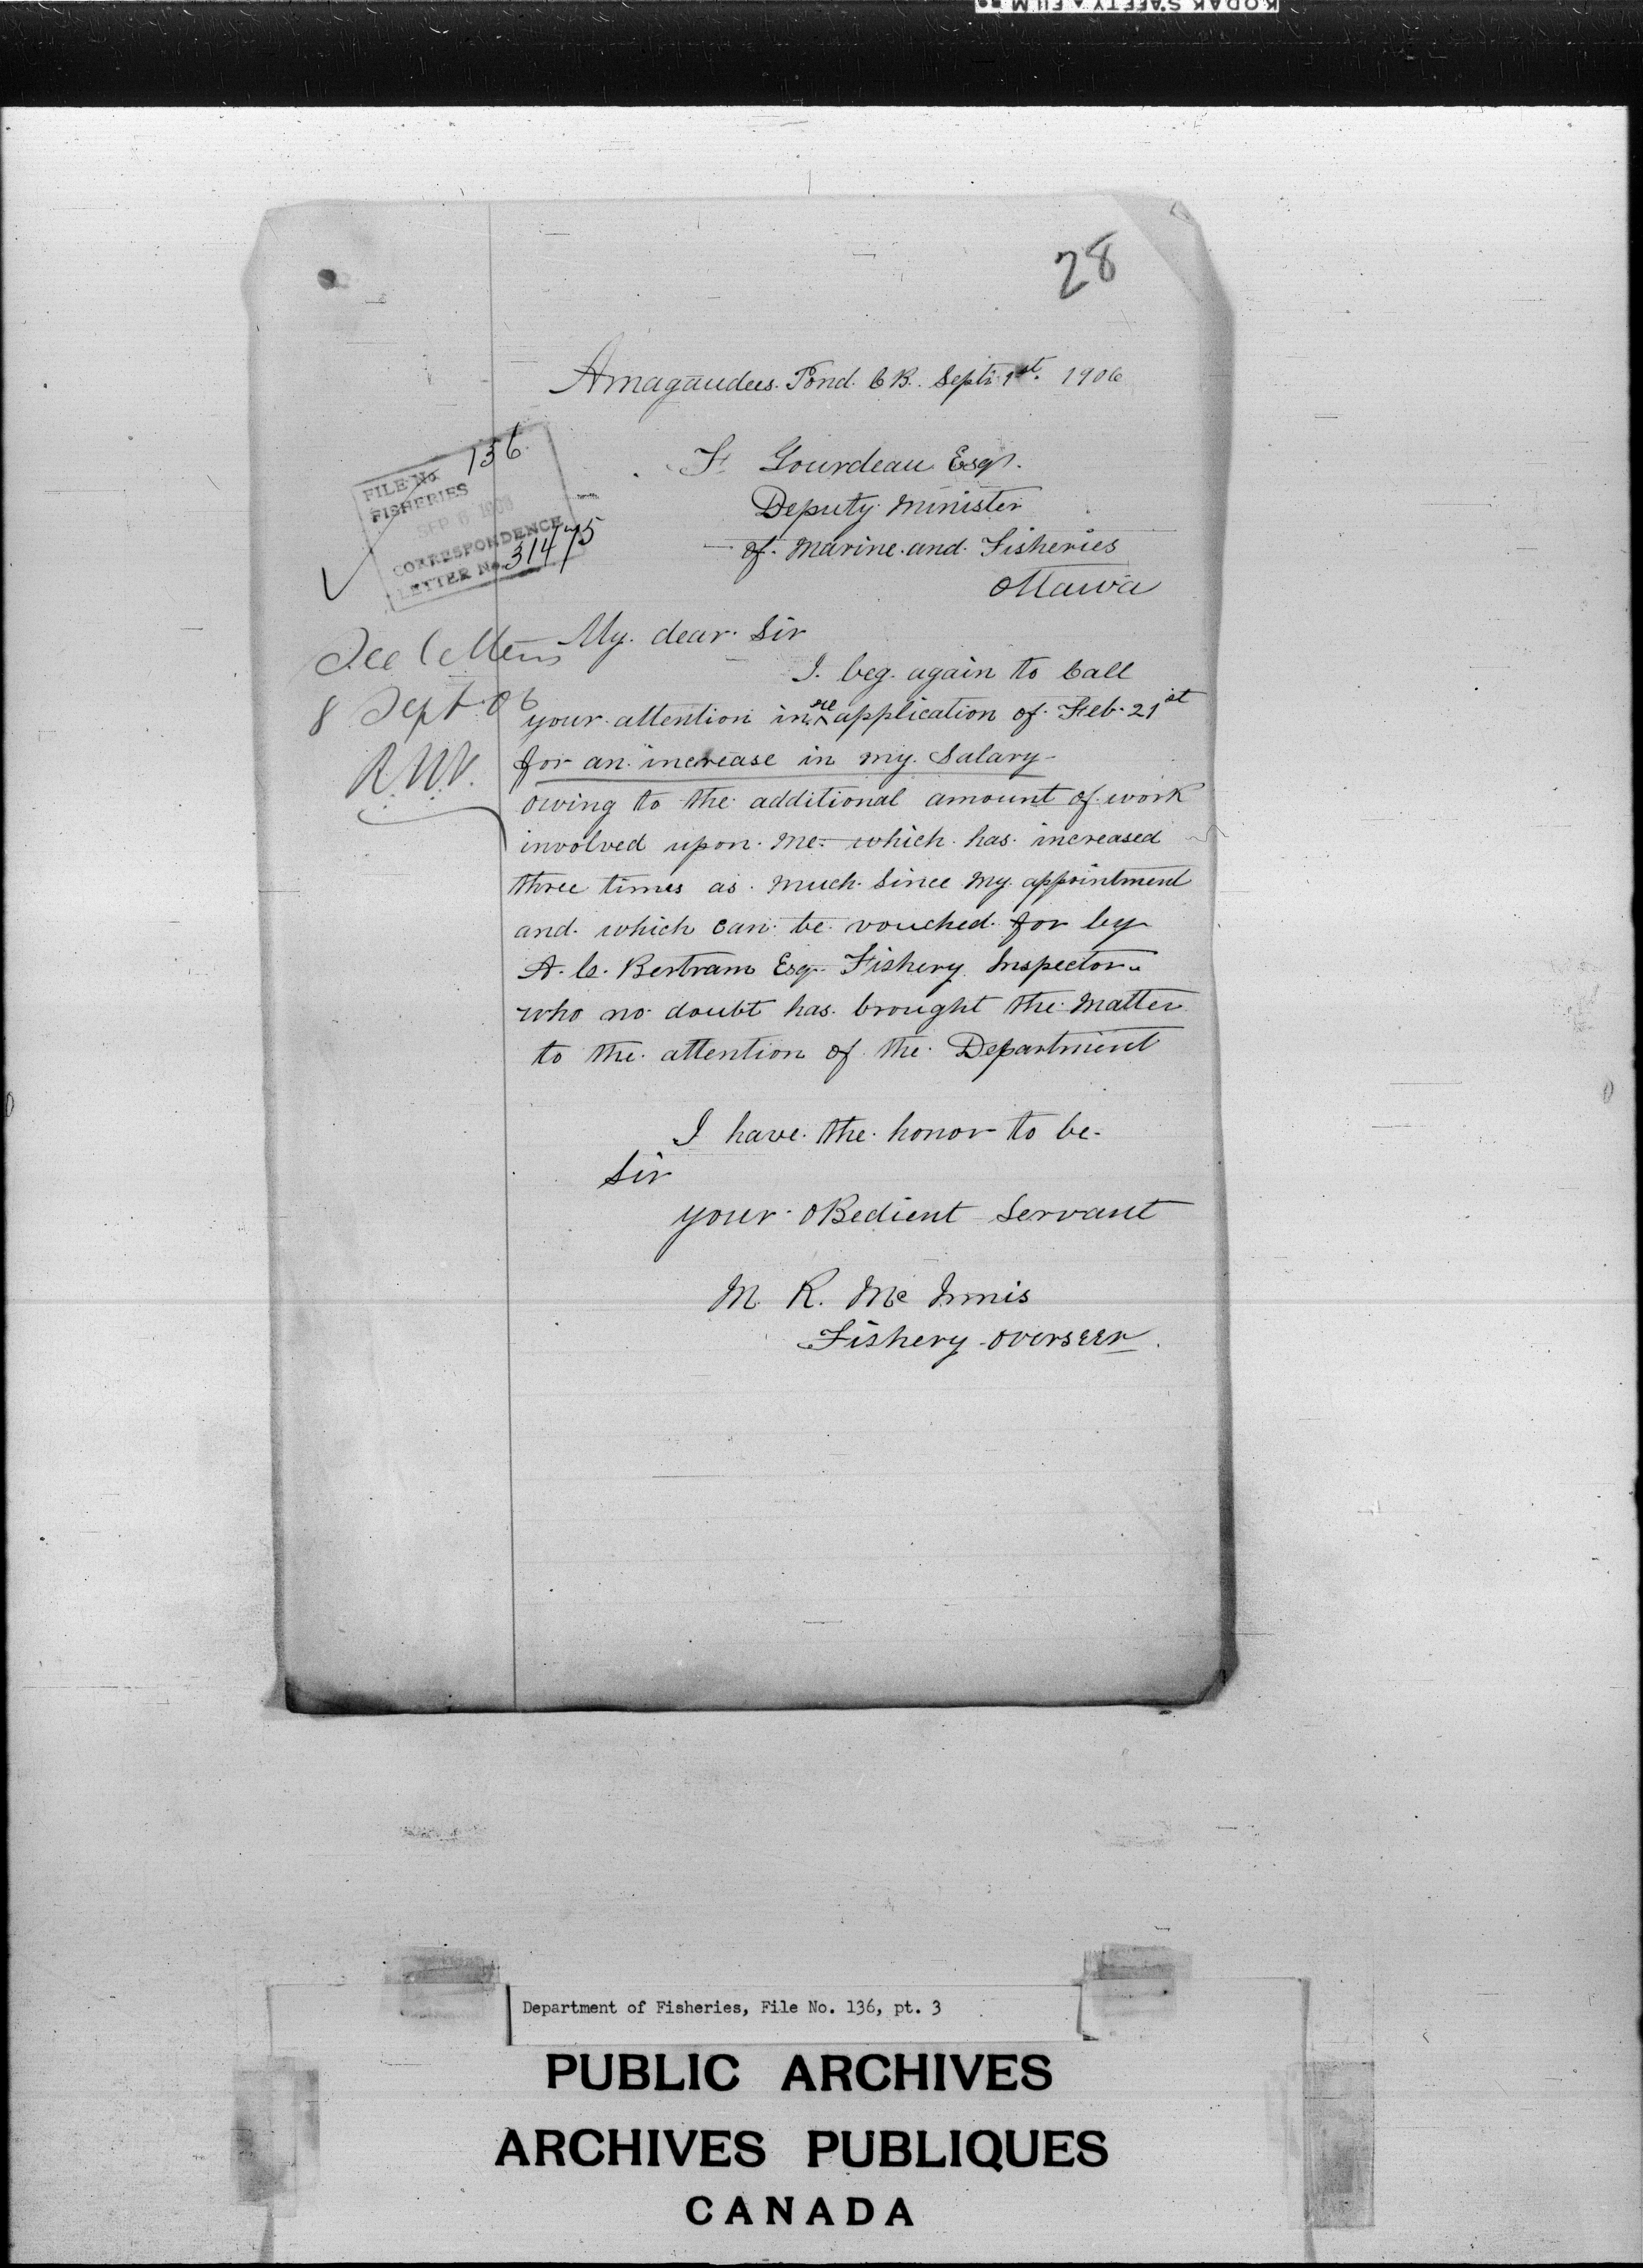 KODAK SAFETY FILM
28
Amagaudees. Pond. C B. Sept. 1st. 1906
FILE No. 136
FISHERIES
SEP 6 1906
CORRESPONDENCE
LETTER No. 31475
F. Gourdeau Esqr.
Deputy Minister
of. Marine. and. Fisheries
Ottawa
See letters
8 Sept. 06
My. dear. Sir
I. beg. again to Call
your. attention in re application of. Feb. 21st
for an. increase in my. Salary
owing to the additional amount of. work
involved upon. Me. which. has. increased
three times as. Much. Since My. appointment
and. which can be vouched. for by
A. C. Bertram Esq. Fishery. Inspector.
who no doubt has. brought the Matter
to the. attention of the. Department
I have. the. honor to be.
Sir
your. oBedient Servant
M. R. Mc Innis
Fishery overseer.
Department of Fisheries, File No. 136, pt. 3
PUBLIC ARCHIVES
ARCHIVES PUBLIQUES
CANADA